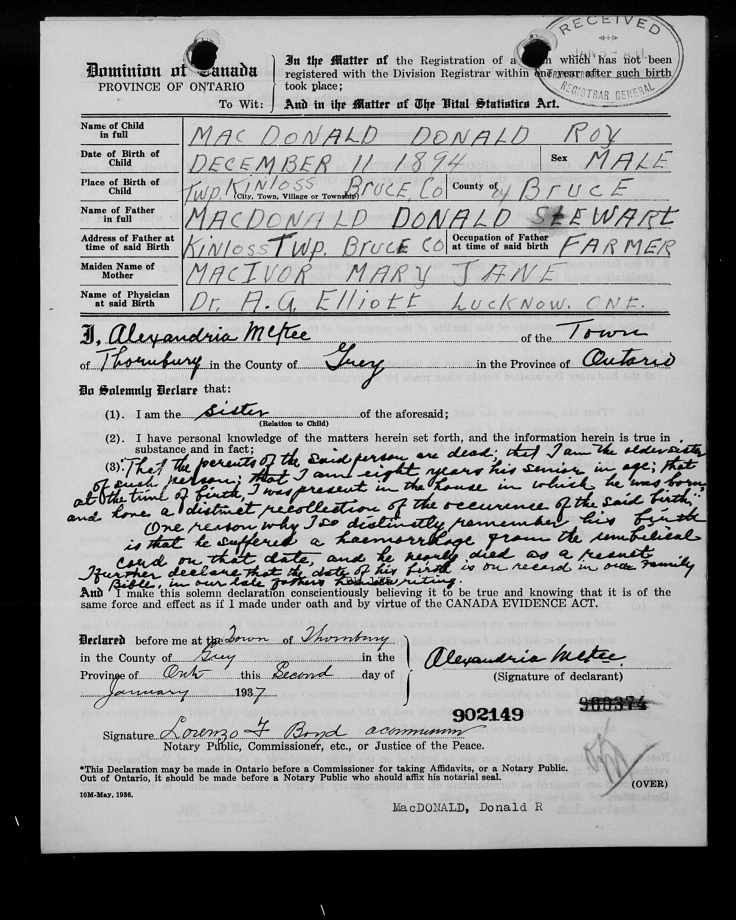 RECEIVED
REGISTRAR GENERAL
Dominion of Canada
PROVINCE OF ONTARIO
To Wit:
In the Matter of the Registration of a which has not been
registered with the Division Registrar within one year after such birth
took place;
And in the Matter of The Vital Statistics Act.
Name of Child
in full
MACDONALD DONALD ROY
Date of Birth of
Child
DECEMBER 11 1894
Sex
MALE
Place of Birth of
Child
Twp. KINLOSS BRUCE, Co
(City, Town, Village or Township)
County of
BRUCE
Name of Father
in full
MACDONALD DONALD STEWART
Address of Father at
time of said Birth
KINLOSS TWP. BRUCE CO
Occupation of Father
at time of said birth
FARMER
Maiden Name of
Mother
MACIVOR MARY JANE
Name of Physician
at said Birth
Dr. A. G. ELLIOTT LUCKNOW. ONT.
I, Alexandria McKee of the Town
of Thornbury in the County of Grey in the Province of Ontario
Do Solemnly Declare that:
(1). I am the sister of the aforesaid;
(Relation to Child)
(2). I have personal knowledge of the matters herein set forth, and the information herein is true in
substance and in fact;
(3). That the parents of the said person are dead; that I am the older sister
of such person; that I am eight years his senior in age; that
at the time of birth, I was present in the house in which he was born,
and have a distinct recollection of the occurence of the said birth;
One reason why I so distinctly remember his birth
is that he suffered a haemorrhage from the umbilical
cord on that date, and he nearly died as a result
I further declare that the date of his birth is on record in our Family
Bible, in our late fathers handwriting.
And I make this solemn declaration conscientiously believing it to be true and knowing that it is of the
same force and effect as if I made under oath and by virtue of the CANADA EVIDENCE ACT.
Declared before me at the Town of Thornbury
in the County of Grey in the
Province of Ont this Second day of
January 1937
Alexandria McKee.
(Signature of declarant)
902149
Signature Lorenzo F Boyd
Notary Public, Commissioner, etc., or Justice of the Peace.
*This Declaration may be made in Ontario before a Commissioner for taking Affidavits, or a Notary Public.
Out of Ontario, it should be made before a Notary Public who should affix his notarial seal.
(OVER)
10M-May, 1936.
MacDONALD, Donald R